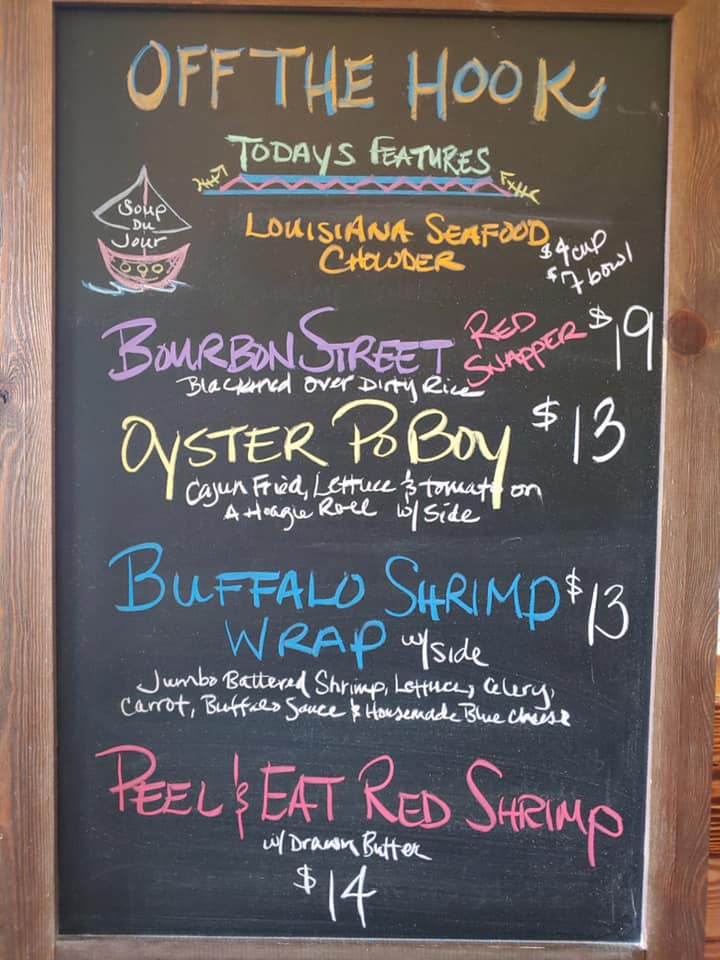 OFF THE HOOK
TODAYS FEATURES
Soup
Du
Jour
LOUISIANA SEAFOOD
CHOWDER
$4 cup
$7 bowl
BOURBON STREET RED SNAPPER $19
Blackened over Dirty Rice
OYSTER PO BOY $13
Cajun Fried, Lettuce & tomato on
A Hoagie Roll w/ Side
BUFFALO SHRIMP $13
WRAP w/ Side
Jumbo Battered Shrimp, Lettuce, Celery,
Carrot, Buffalo Sauce & Housemade Blue cheese
PEEL & EAT RED SHRIMP
w/ Drawn Butter
$14